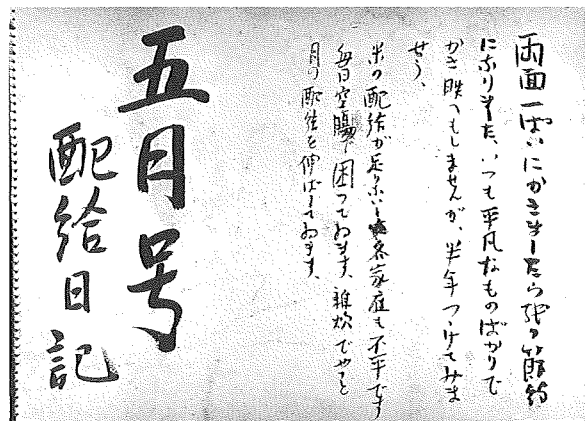 両面一ぱいにかきましたら紙の節約
になりました、いつも平凡なものばかりで
かき映へもしませんが、半年つゞけてみま
せう、
米の配給が足りないと各家庭も不平です
毎日空腹で困つてゐます、雑炊でやつと
月の配給を伸ばしてゐます、
五月号
配給日記